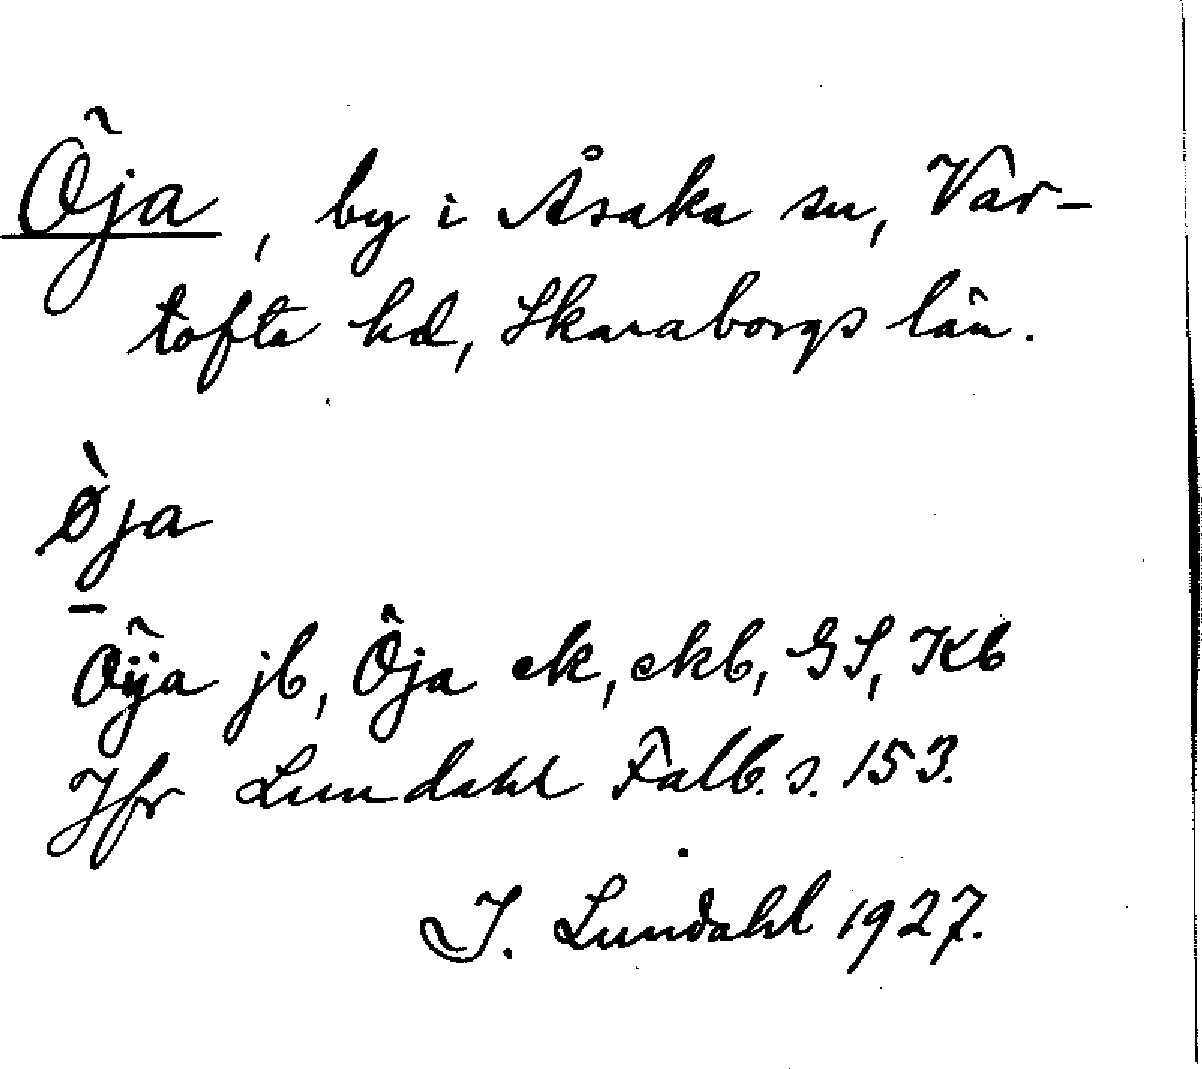 Öja, by i Åsaka sn, Var-
tofta hd, Skaraborgs län.
ø̀ja
Öÿa jb, Öja ek, ekb, GS, Kb
Jfr Lundahl Falb. s. 153.
I. Lundahl 1927.